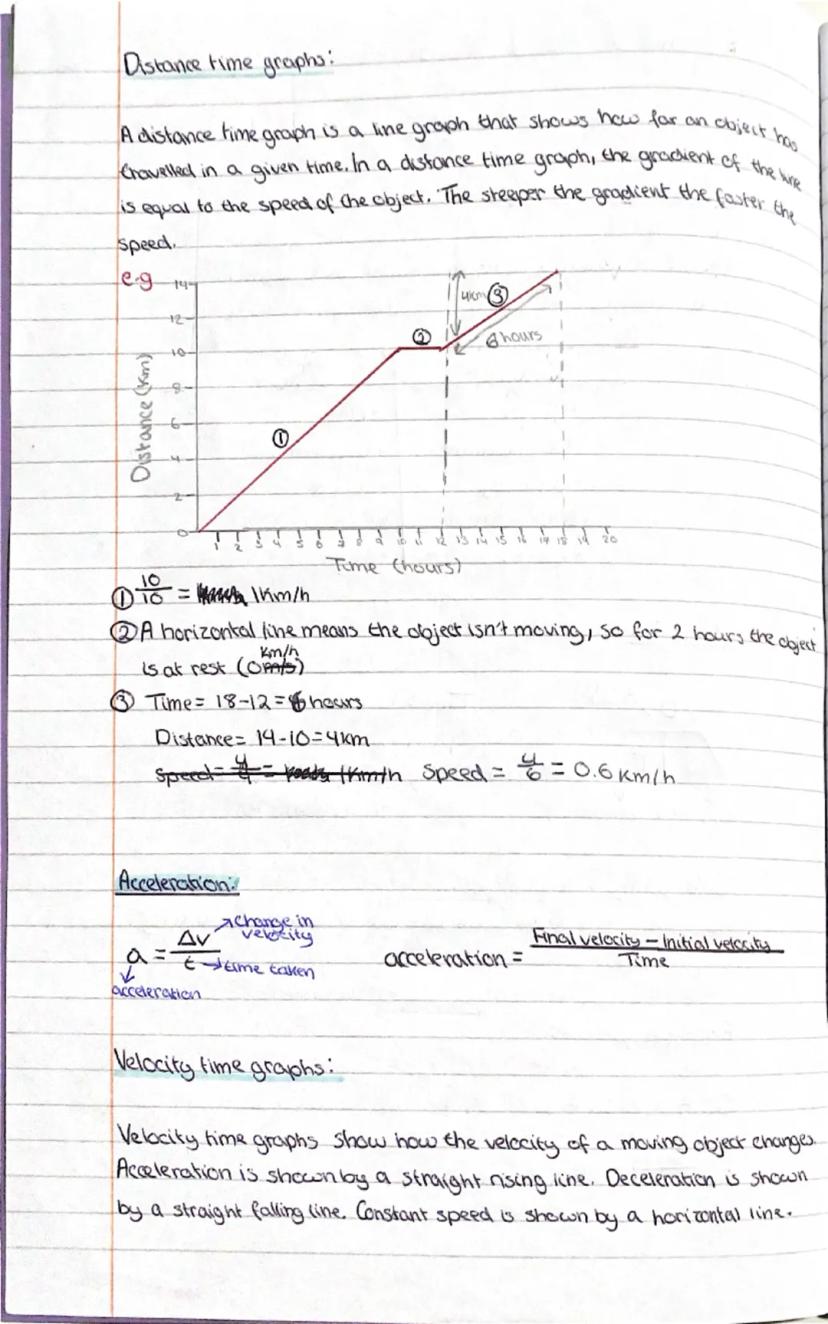 Distance time graphs:
A distance time graph is a line graph that shows how far an object has
travelled in a given time. In a distance time graph, the gradient of the line
is equal to the speed of the object. The steeper the gradient the faster the
speed.
e.g
Distance (km)
14
12
10
8
6
4
2
0
① ② ③
4km
6 hours
1 2 3 4 5 6 7 8 9 10 11 12 13 14 15 16 17 18 19 20
Time (hours)
① 10/10 = 1km/h
② A horizontal line means the object isn't moving, so for 2 hours the object
km/h
is at rest (0m/s)
③ Time = 18-12 = 6 hours
Distance = 14-10 = 4km
Speed = 4/4 = 1km/h Speed = 4/6 = 0.6 km/h
Acceleration:
a = Δv/t
change in
velocity
time taken
acceleration
acceleration = Final velocity - Initial velocity / Time
Velocity time graphs:
Velocity time graphs show how the velocity of a moving object changes.
Acceleration is shown by a straight rising line. Deceleration is shown
by a straight falling line. Constant speed is shown by a horizontal line.